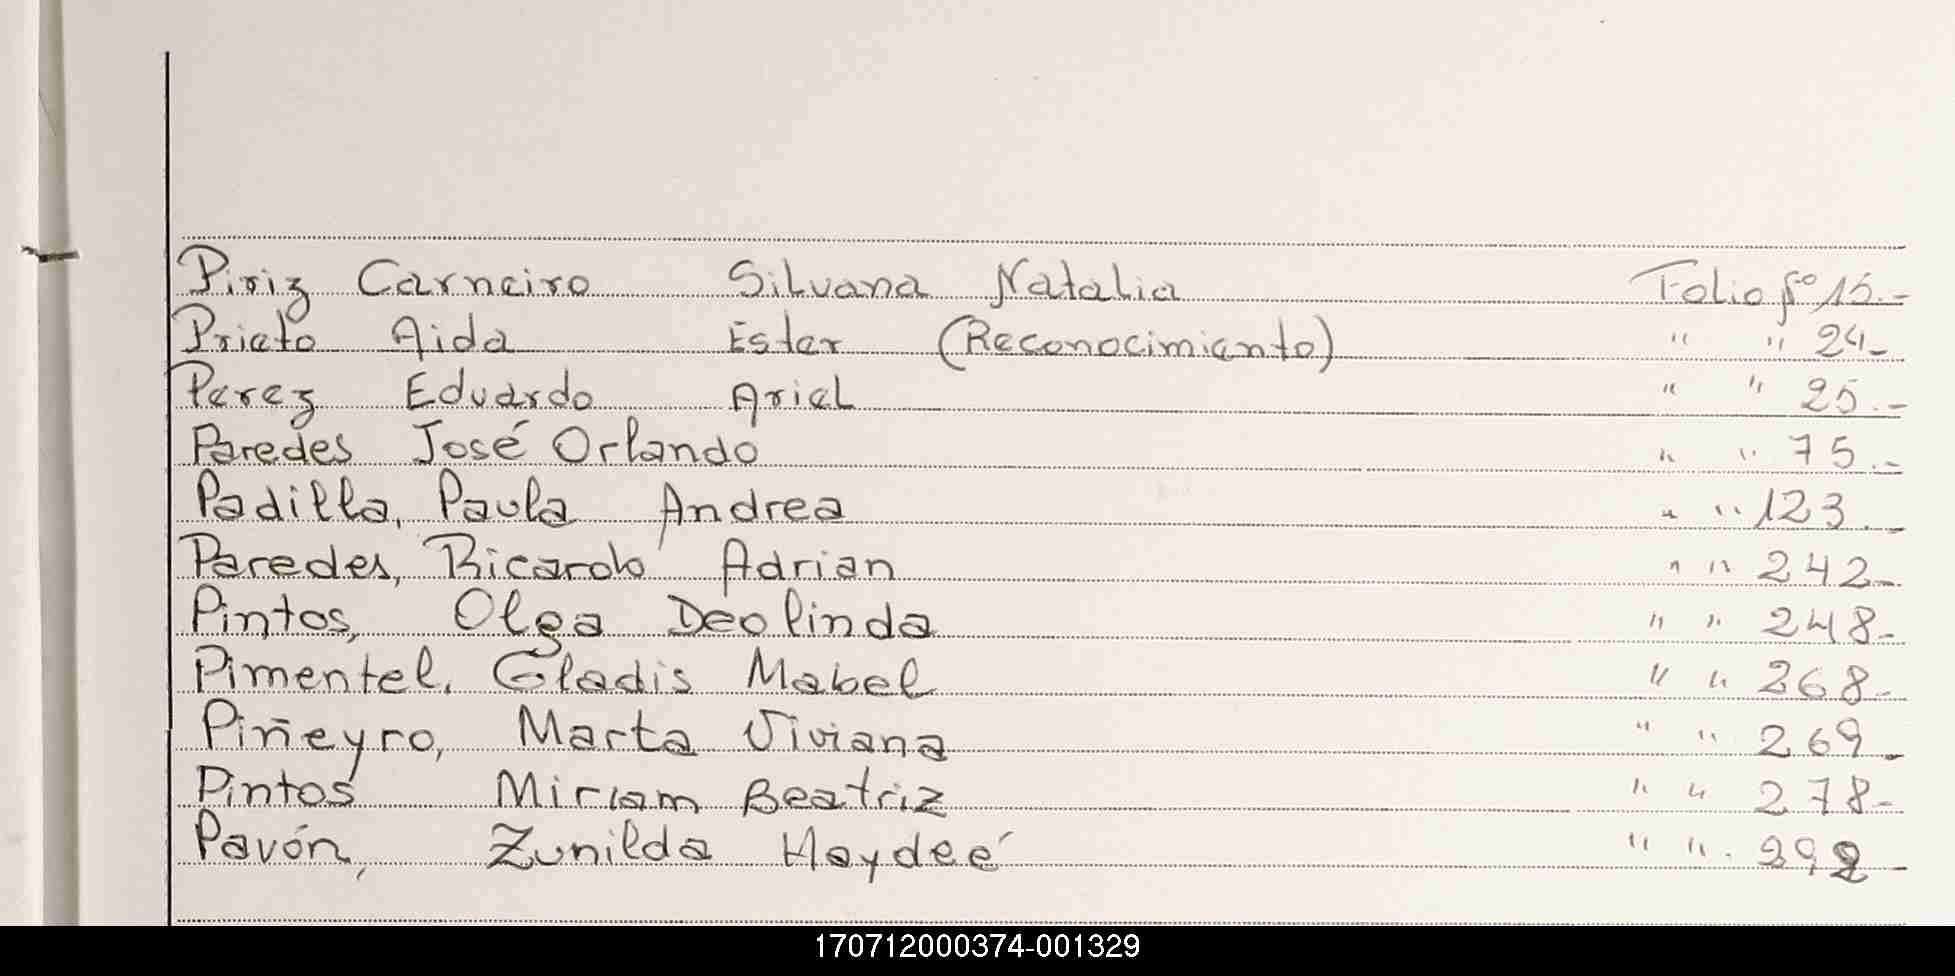 Piriz Carneiro Silvana Natalia Folio fº 15.-
Prieto Aida Ester (Reconocimiento) " " 24-
Perez Eduardo Ariel " " 25.-
Paredes José Orlando " " 75.-
Padilla, Paula Andrea " " 123.-
Paredes, Ricardo Adrian " " 242-
Pintos, Olga Deolinda " " 248-
Pimentel, Gladis Mabel " " 268-
Piñeyro, Marta Viviana " " 269-
Pintos Miriam Beatriz " " 278-
Pavón, Zunilda Haydeé " ". 292-
170712000374-001329